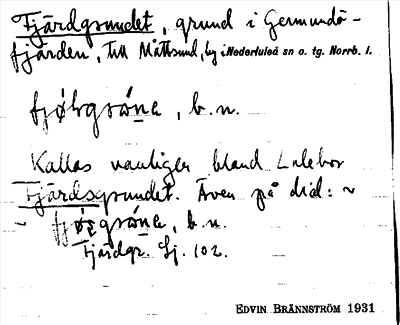 Fjärdgrundet, grund i Germundö-
fjärden, till Måttsund, by i Nederluleå sn o. tg. Norrb. l.
b.n.
Kallas vanligen bland Lulebor
Fjärdsgrundet. Även på dial: ~
~ b.n.
Fjärdgr. Sj. 102.
EDVIN BRÄNNSTRÖM 1931